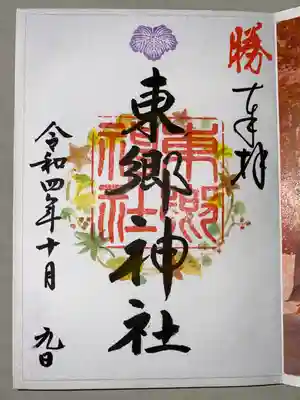 勝
奉拝
東郷神社
東郷神社
令和四年十月九日